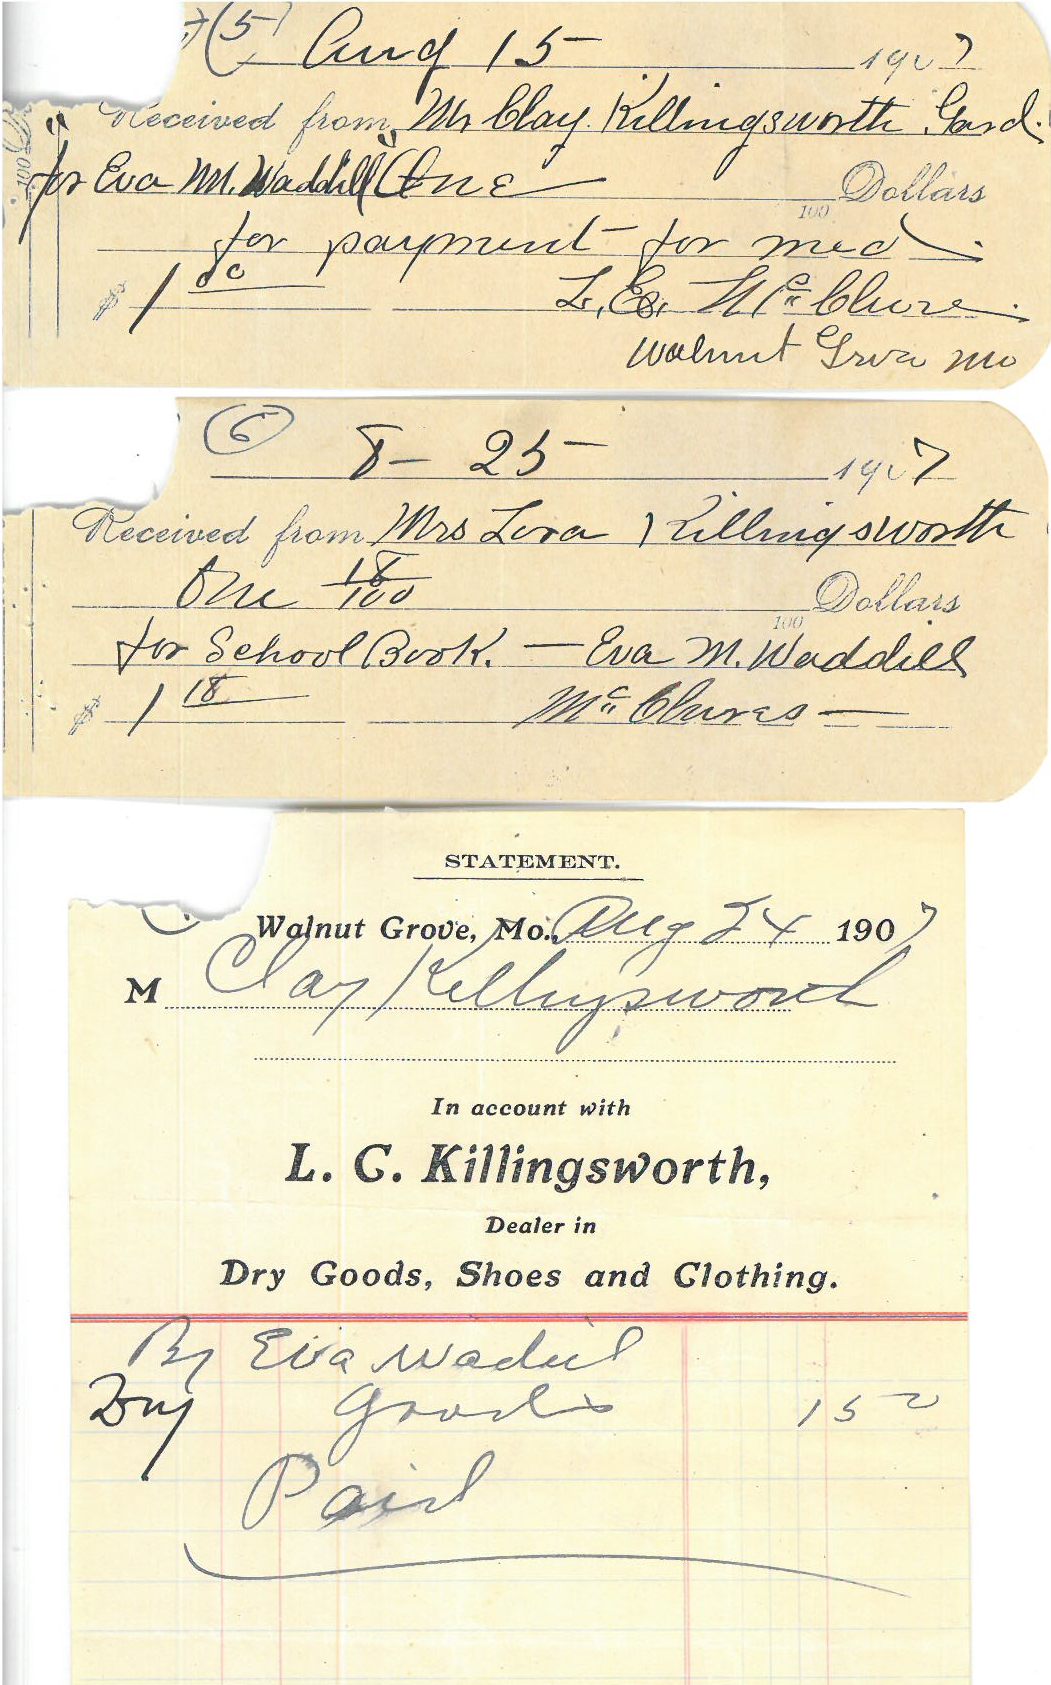 (5) Aug 15 1907
Received from Mr Clay Killingsworth Gard.
for Eva M. Waddill One Dollars
100
for payment for med
$ 1 00 L. E. McClure
Walnut Grve Mo
(6) 8 - 25 1907
Received from Mrs Lora Killingsworth
One 18/100 Dollars
100
for School Book. — Eva M. Waddill
$ 1 18 McClures
STATEMENT.
Walnut Grove, Mo., Aug 24 1907
M Clay Killingsworth
In account with
L. C. Killingsworth,
Dealer in
Dry Goods, Shoes and Clothing.
By Eva Wadill
Dry Goods
Paid